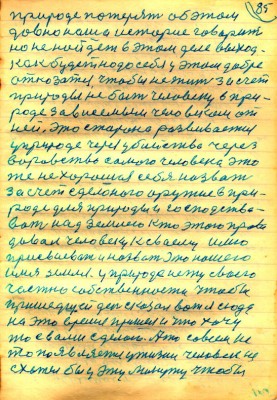 85
природе потерят об этом
давно наша история говорит
но не найдет в этом деле выход.
Как будет надо себя у этом добре
отказать, чтобы не жит за счет
природы не быт человеку в при-
роде зависемым человеком от
ней, Это сторона развивается
у природе через убийство через
воровство самого человека Это
же не хорошая себя назват
за счет сделоного оружие в при-
роде для природы и господство-
ват над землею Кто этого права
давал человеку к своему имю
присвоеват и назват Это нашего
имя земля. у природе нету своего
частно собственности чтобы
пришедший деп сказал вот я сюда
на это время пришел и что хочу
то с вами сделаю. А то совсем не
то появляется у жизни человек не
схотел бы у эту минуту чтобы